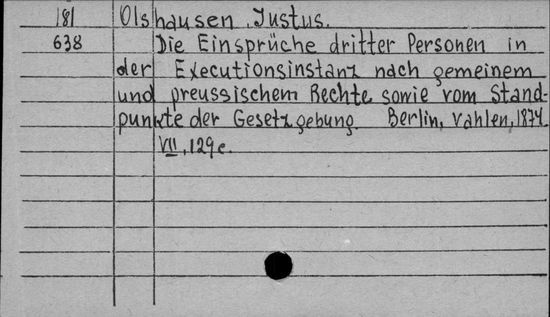 181 Olshausen, Justus.
638 Die Einsprüche dritter Personen in
der Executionsinstanz nach gemeinem
und preussischem Rechte sowie vom Stand-
punkte der Gesetzgebung. Berlin, Vahlen, 1874.
VII, 129 c.